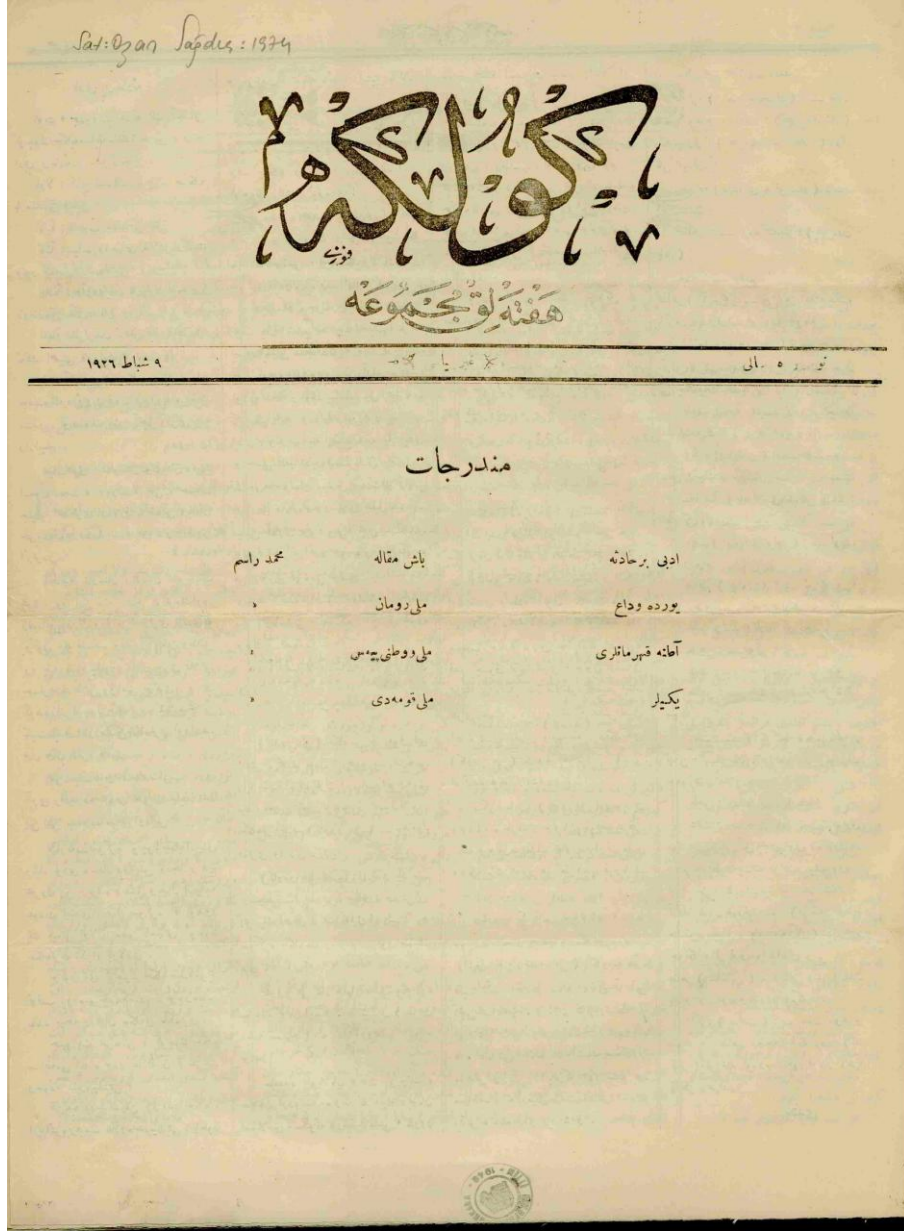 Sat: Ozan Sağdıç: 1974
كولكه
فوزی
هفته لق مجموعه
٩ شباط ١٩٢٦
مندرجات
ادبی بر حادثه باش مقاله محمد راسم
یورده وداع ملی رومان »
آطنه قهرمانلری ملی و وطنی پیه‌س »
یكیلر ملی قومه‌دی »